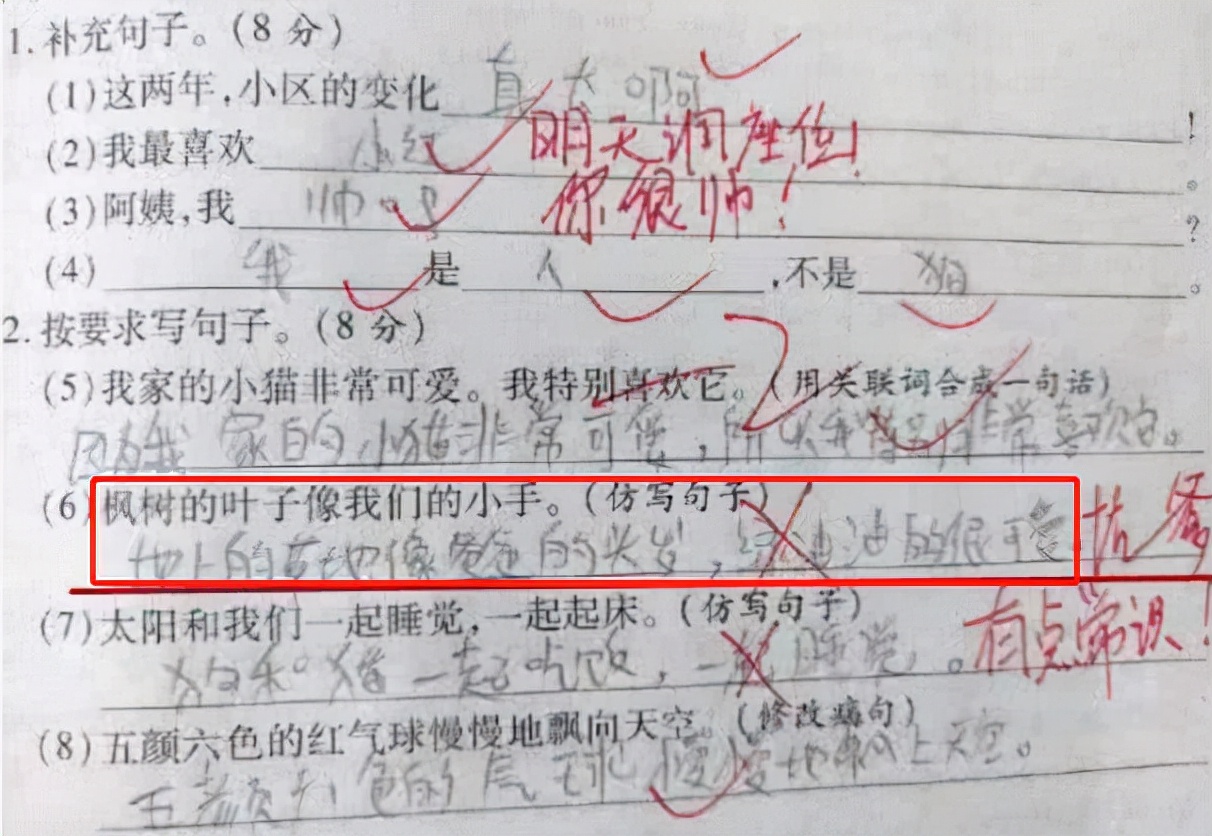 1. 补充句子。(8 分)
(1)这两年,小区的变化 真大啊 !
(2)我最喜欢 小红 。 明天调座位!
(3)阿姨,我 帅吗 ? 你很帅!
(4) 我 是 人 ,不是 猫 。
2. 按要求写句子。(8 分)
(5)我家的小猫非常可爱。我特别喜欢它。(用关联词合成一句话)
因为我家的小猫非常可爱,所以我特别非常喜欢它。
(6)枫树的叶子像我们的小手。(仿写句子)
地上的草地像爸爸的头发, 油油的很可爱
有点常识!
(7)太阳和我们一起睡觉,一起起床。(仿写句子)
狗和猫一起吃饭,一起睡觉。
(8)五颜六色的红气球慢慢地飘向天空。(修改病句)
五颜六色的气球慢慢地飘上天空。